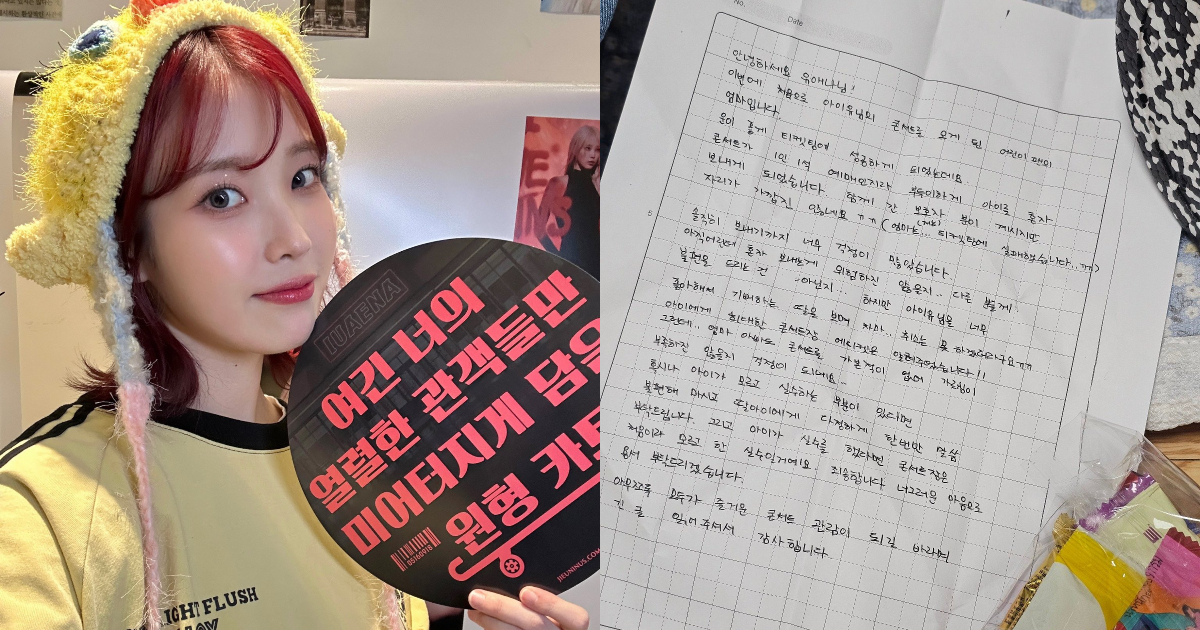 IUAENA
여긴 너의
열렬한 관객들만
미어터지게 담을
원형
05160918
JIEUNINUS.COM
LIGHT FLUSH
No.
Date
안녕하세요 유애나님!
이번에 처음으로 아이유님의 콘서트로 오게 된 어린이 팬의
엄마입니다.
운이 좋게 티켓팅에 성공하게 되었는데요
콘서트가 1인 1석 예매인지라 부득이하게 아이를 혼자
보내게 되었습니다. 함께 간 보호자 분이 계시지만
자리가 가깝진 않네요 ㅠㅠ (엄마는... 티켓팅에 실패했습니다..ㅠㅠ)
솔직히 보내기까지 너무 걱정이 많았습니다
아직어린데 혼자 보내는게 위험하진 않을지.. 다른 분들께
불편을 드리는 건 아닌지.. 하지만 아이유님을 너무
좋아해서 기뻐하는 딸을 보며 차마.. 취소는 못 하겠더라구요ㅠㅠ
아이에게 최대한 콘서트장 에티켓은 알려주었습니다!!
그런데.. 엄마 아빠도 콘서트를 가본적이 없어 가르침이
부족하진 않을지 걱정이 되네요...
혹시나 아이가 모르고 실수하는 부분이 있다면
불편해 마시고 딸아이에게 다정하게 한번만 말씀
부탁드립니다. 그리고 아이가 실수를 했다면 콘서트장은
처음이라 모르고 한 실수일거예요 죄송합니다 너그러운 마음으로
용서 부탁드리겠습니다.
아무쪼록 모두가 즐거운 콘서트 관람이 되길 바라며
긴 글 읽어주셔서 감사합니다.